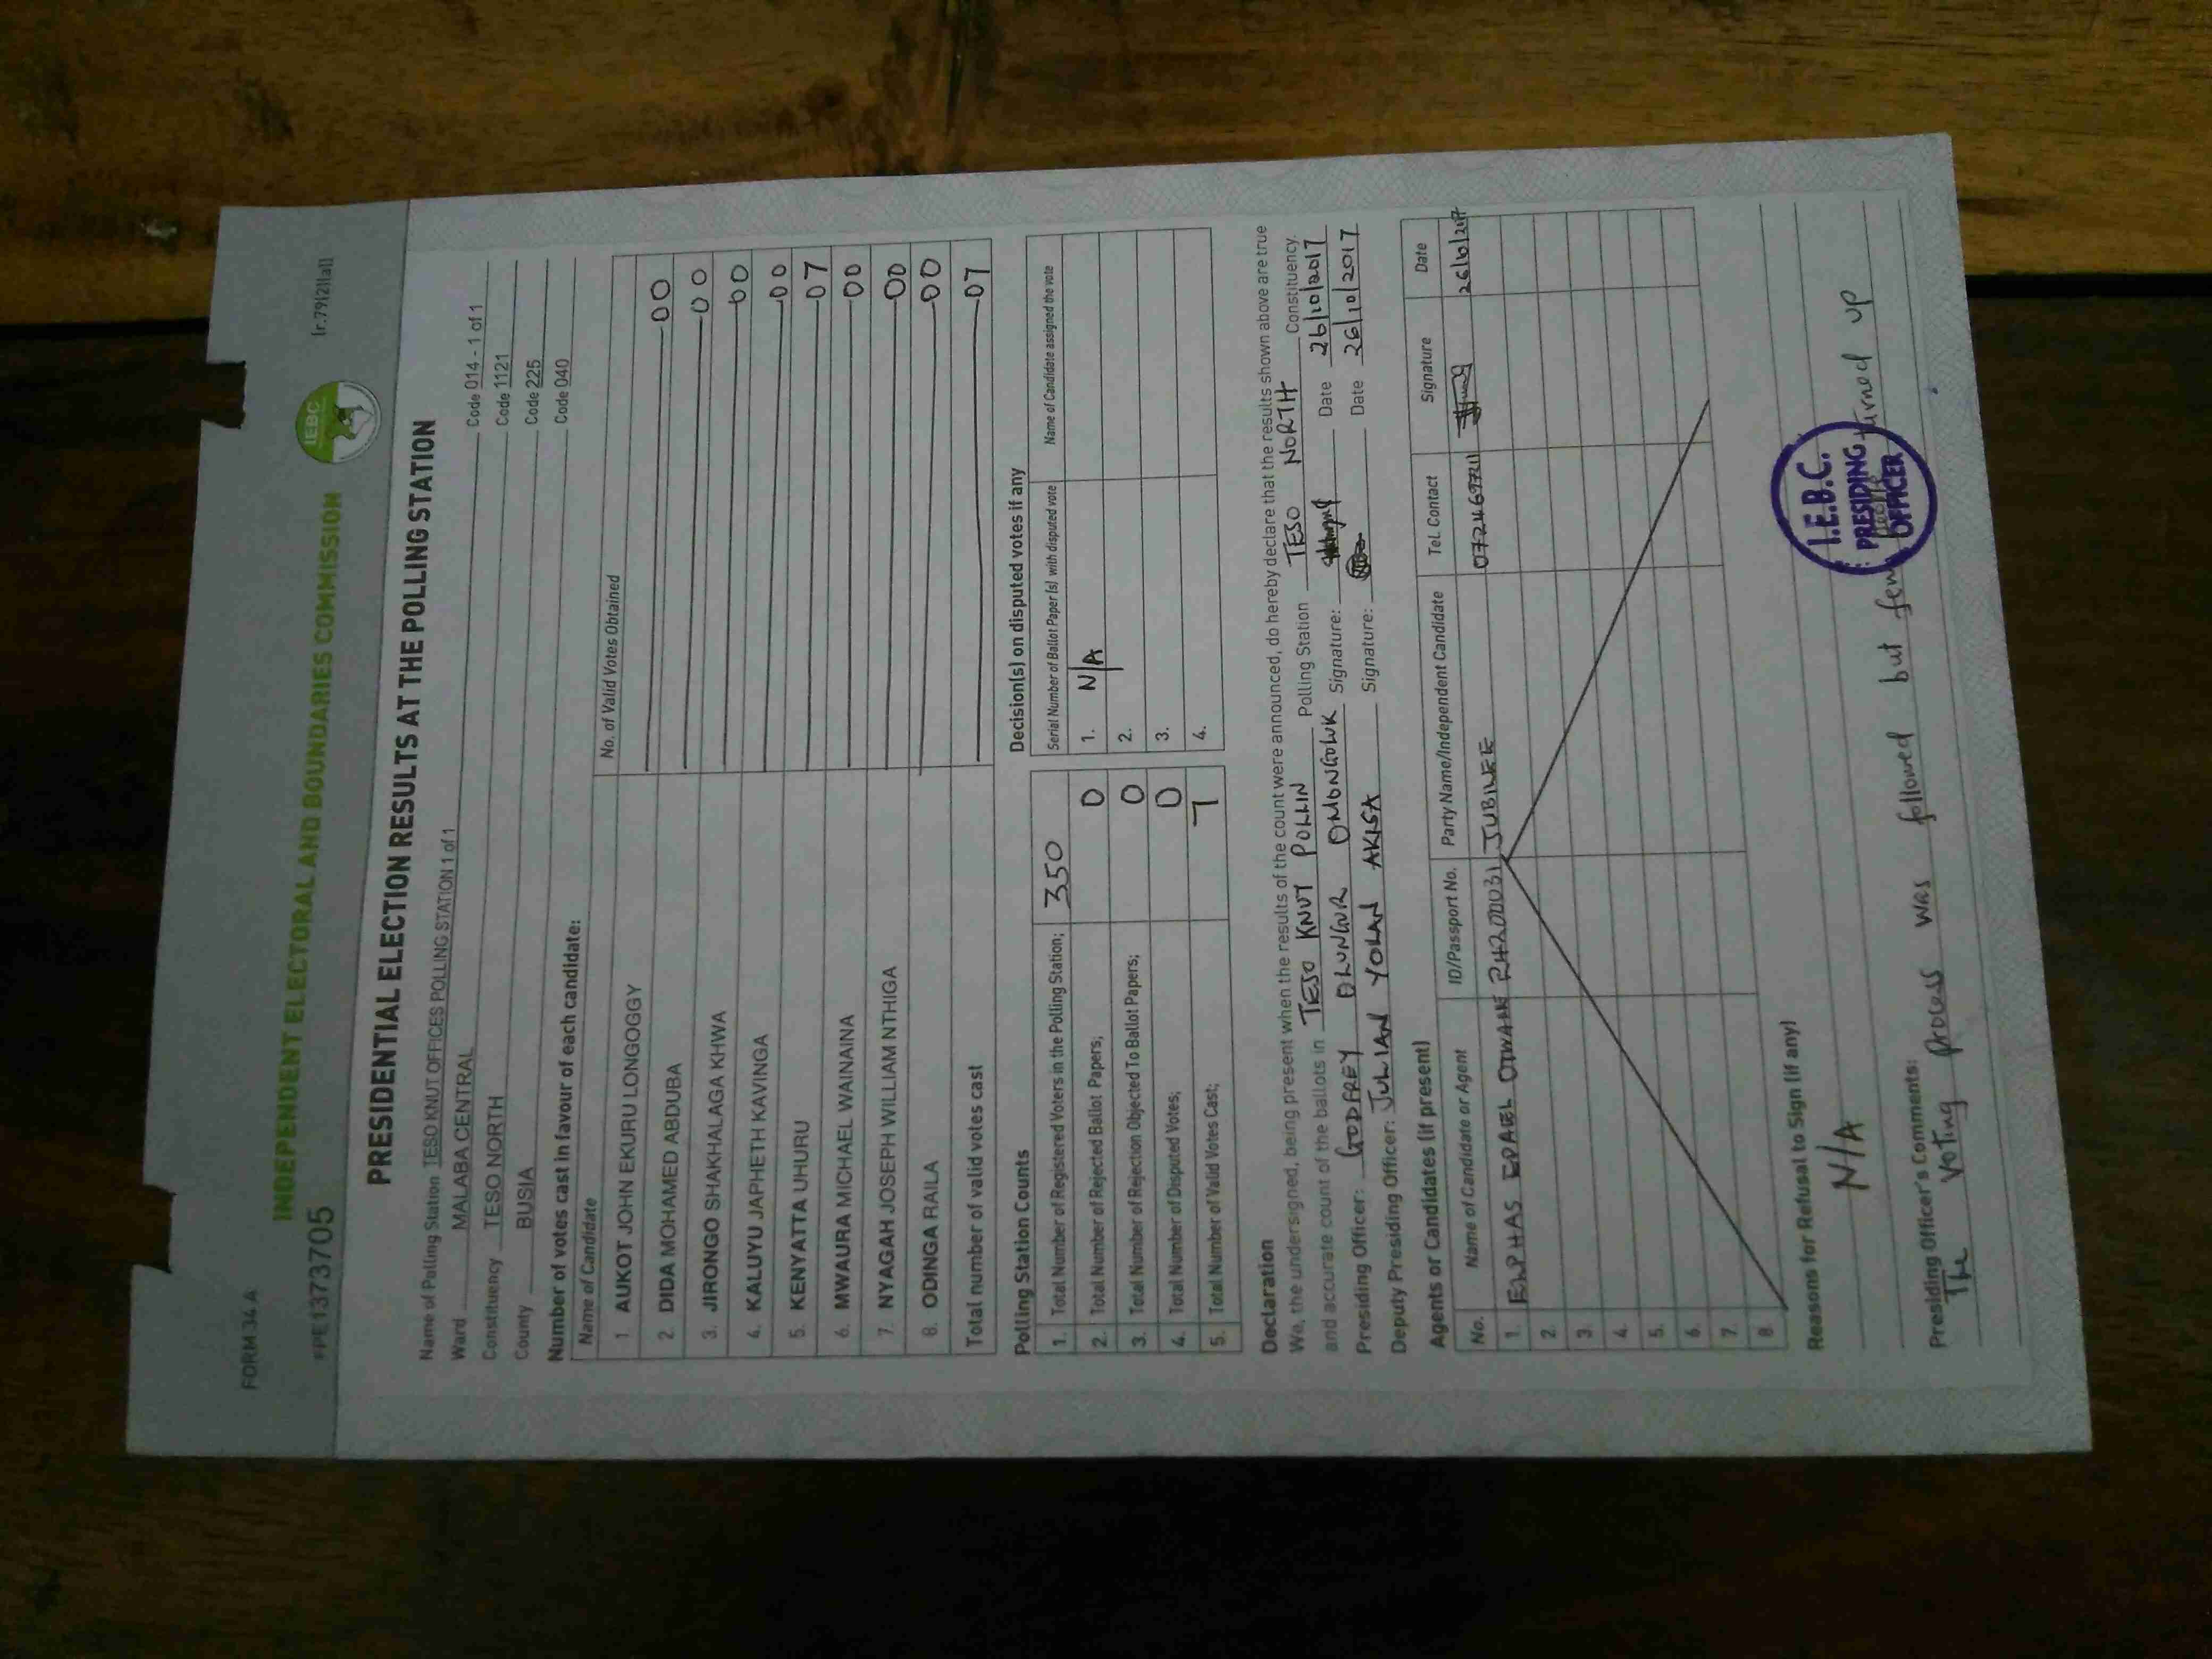 FORM 34 A
INDEPENDENT ELECTORAL AND BOUNDARIES COMMISSION
IEBC
(r.79(2)(a))
PRESIDENTIAL ELECTION RESULTS AT THE POLLING STATION
Name of Polling Station TESO KNUT OFFICES POLLING STATION 1 of 1 Code 014 - 1 of 1
Ward MALABA CENTRAL Code 1121
Constituency TESO NORTH Code 225
County BUSIA Code 040
Number of votes cast in favour of each candidate:
Name of Candidate No. of Valid Votes Obtained
1. AUKOT JOHN EKURU LONGOGGY 00
2. DIDA MOHAMED ABDUBA 00
3. JIRONGO SHAKHALAGA KHWA 00
4. KALUYU JAPHETH KAVINGA 00
5. KENYATTA UHURU 07
6. MWAURA MICHAEL WAINAINA 00
7. NYAGAH JOSEPH WILLIAM NTHIGA 00
8. ODINGA RAILA 00
Total number of valid votes cast 07
Polling Station Counts
1. Total Number of Registered Voters in the Polling Station; 350
2. Total Number of Rejected Ballot Papers; 0
3. Total Number of Rejection Objected To Ballot Papers; 0
4. Total Number of Disputed Votes; 0
5. Total Number of Valid Votes Cast; 7
Decision(s) on disputed votes if any
Serial Number of Ballot Paper (s) with disputed vote Name of Candidate assigned the vote
1. N/A
2.
3.
4.
Declaration
We, the undersigned, being present when the results of the count were announced, do hereby declare that the results shown above are true
and accurate count of the ballots in TESO KNUT POLLIN Polling Station TESO NORTH Constituency.
Presiding Officer: GODFREY OLUNGUR OMONGOLUK Signature: Date 26/10/2017
Deputy Presiding Officer: JULIAN YOLAN AKISA Signature: Date 26/10/2017
Agents or Candidates (if present)
No. Name of Candidate or Agent ID/Passport No. Party Name/Independent Candidate Tel. Contact Signature Date
1. JUBILEE 26/10/2017
2.
3.
4.
5.
6.
7.
8.
Reasons for Refusal to Sign (if any)
N/A
Presiding Officer's Comments:
The voting process was followed but few people turned up
I.E.B.C.
PRESIDING
OFFICER